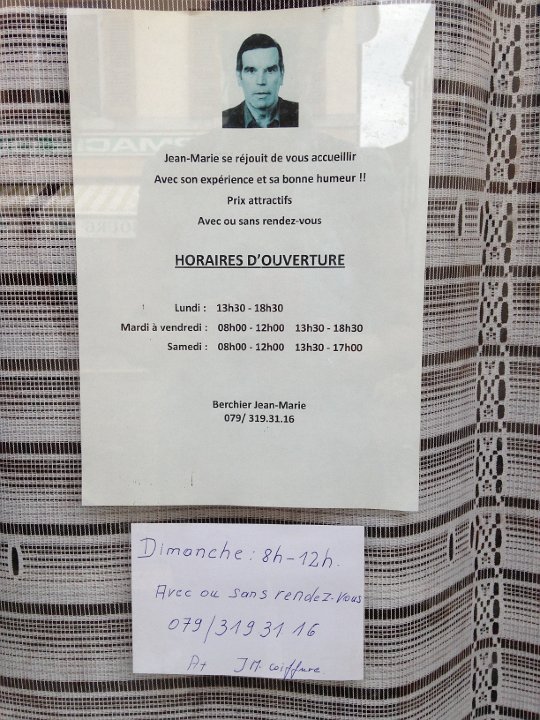 Jean-Marie se réjouit de vous accueillir
Avec son expérience et sa bonne humeur !!
Prix attractifs
Avec ou sans rendez-vous
HORAIRES D'OUVERTURE
Lundi : 13h30 - 18h30
Mardi à vendredi : 08h00 - 12h00 13h30 - 18h30
Samedi : 08h00 - 12h00 13h30 - 17h00
Berchier Jean-Marie
079/ 319.31.16
Dimanche : 8h-12h.
Avec ou sans rendez-vous
079/319 31 16
JM coiffure.